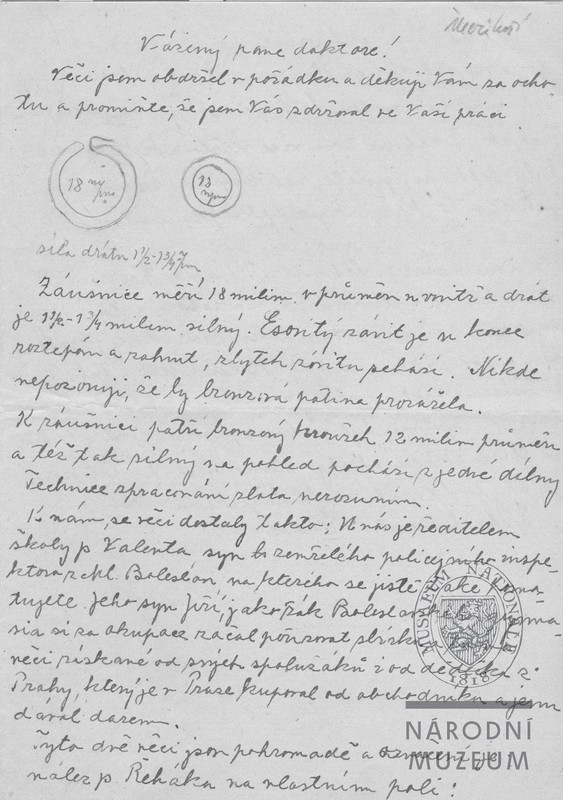 Vážený pane doktore!
Věci jsem obdržel v pořádku a děkuji Vám za ocho-
tu a promiňte, že jsem Vás zdržoval ve Vaší práci
18
12
síla drátu 1½-1¾
Záušnice měří 18 milim. v průměru uvnitř a drát
je 1½-1¾ milim. silný. Esovitý závit je u konce
roztepán a zahnut, zbytek závitu schází. Nikde
nepozoruji, že by bronzová patina prozářela.
K záušnici patří bronzový kroužek 12 milim průměru
a též tak silný na pohled pochází z jedné dílny
Technice zpracování zlata nerozumím.
K nám, se věci dostaly takto; U nás je ředitelem
školy p. Valenta syn b. zemřelého policejního inspe-
ktora z Ml. Boleslav na kterého se jistě také
tujete. Jeho syn Jiří, jako žák
si za okupace začal
věci získané od svých spolužáků i od dědečka z
Prahy, který je v Praze kupoval od obchodníku a jemu
dával darem.
Tyto dvě věci jsou pohromadě a označení je
nález p. Řeháka na vlastním poli!
MUSEUM NATIONALE
1818
NÁRODNÍ
MUZEUM